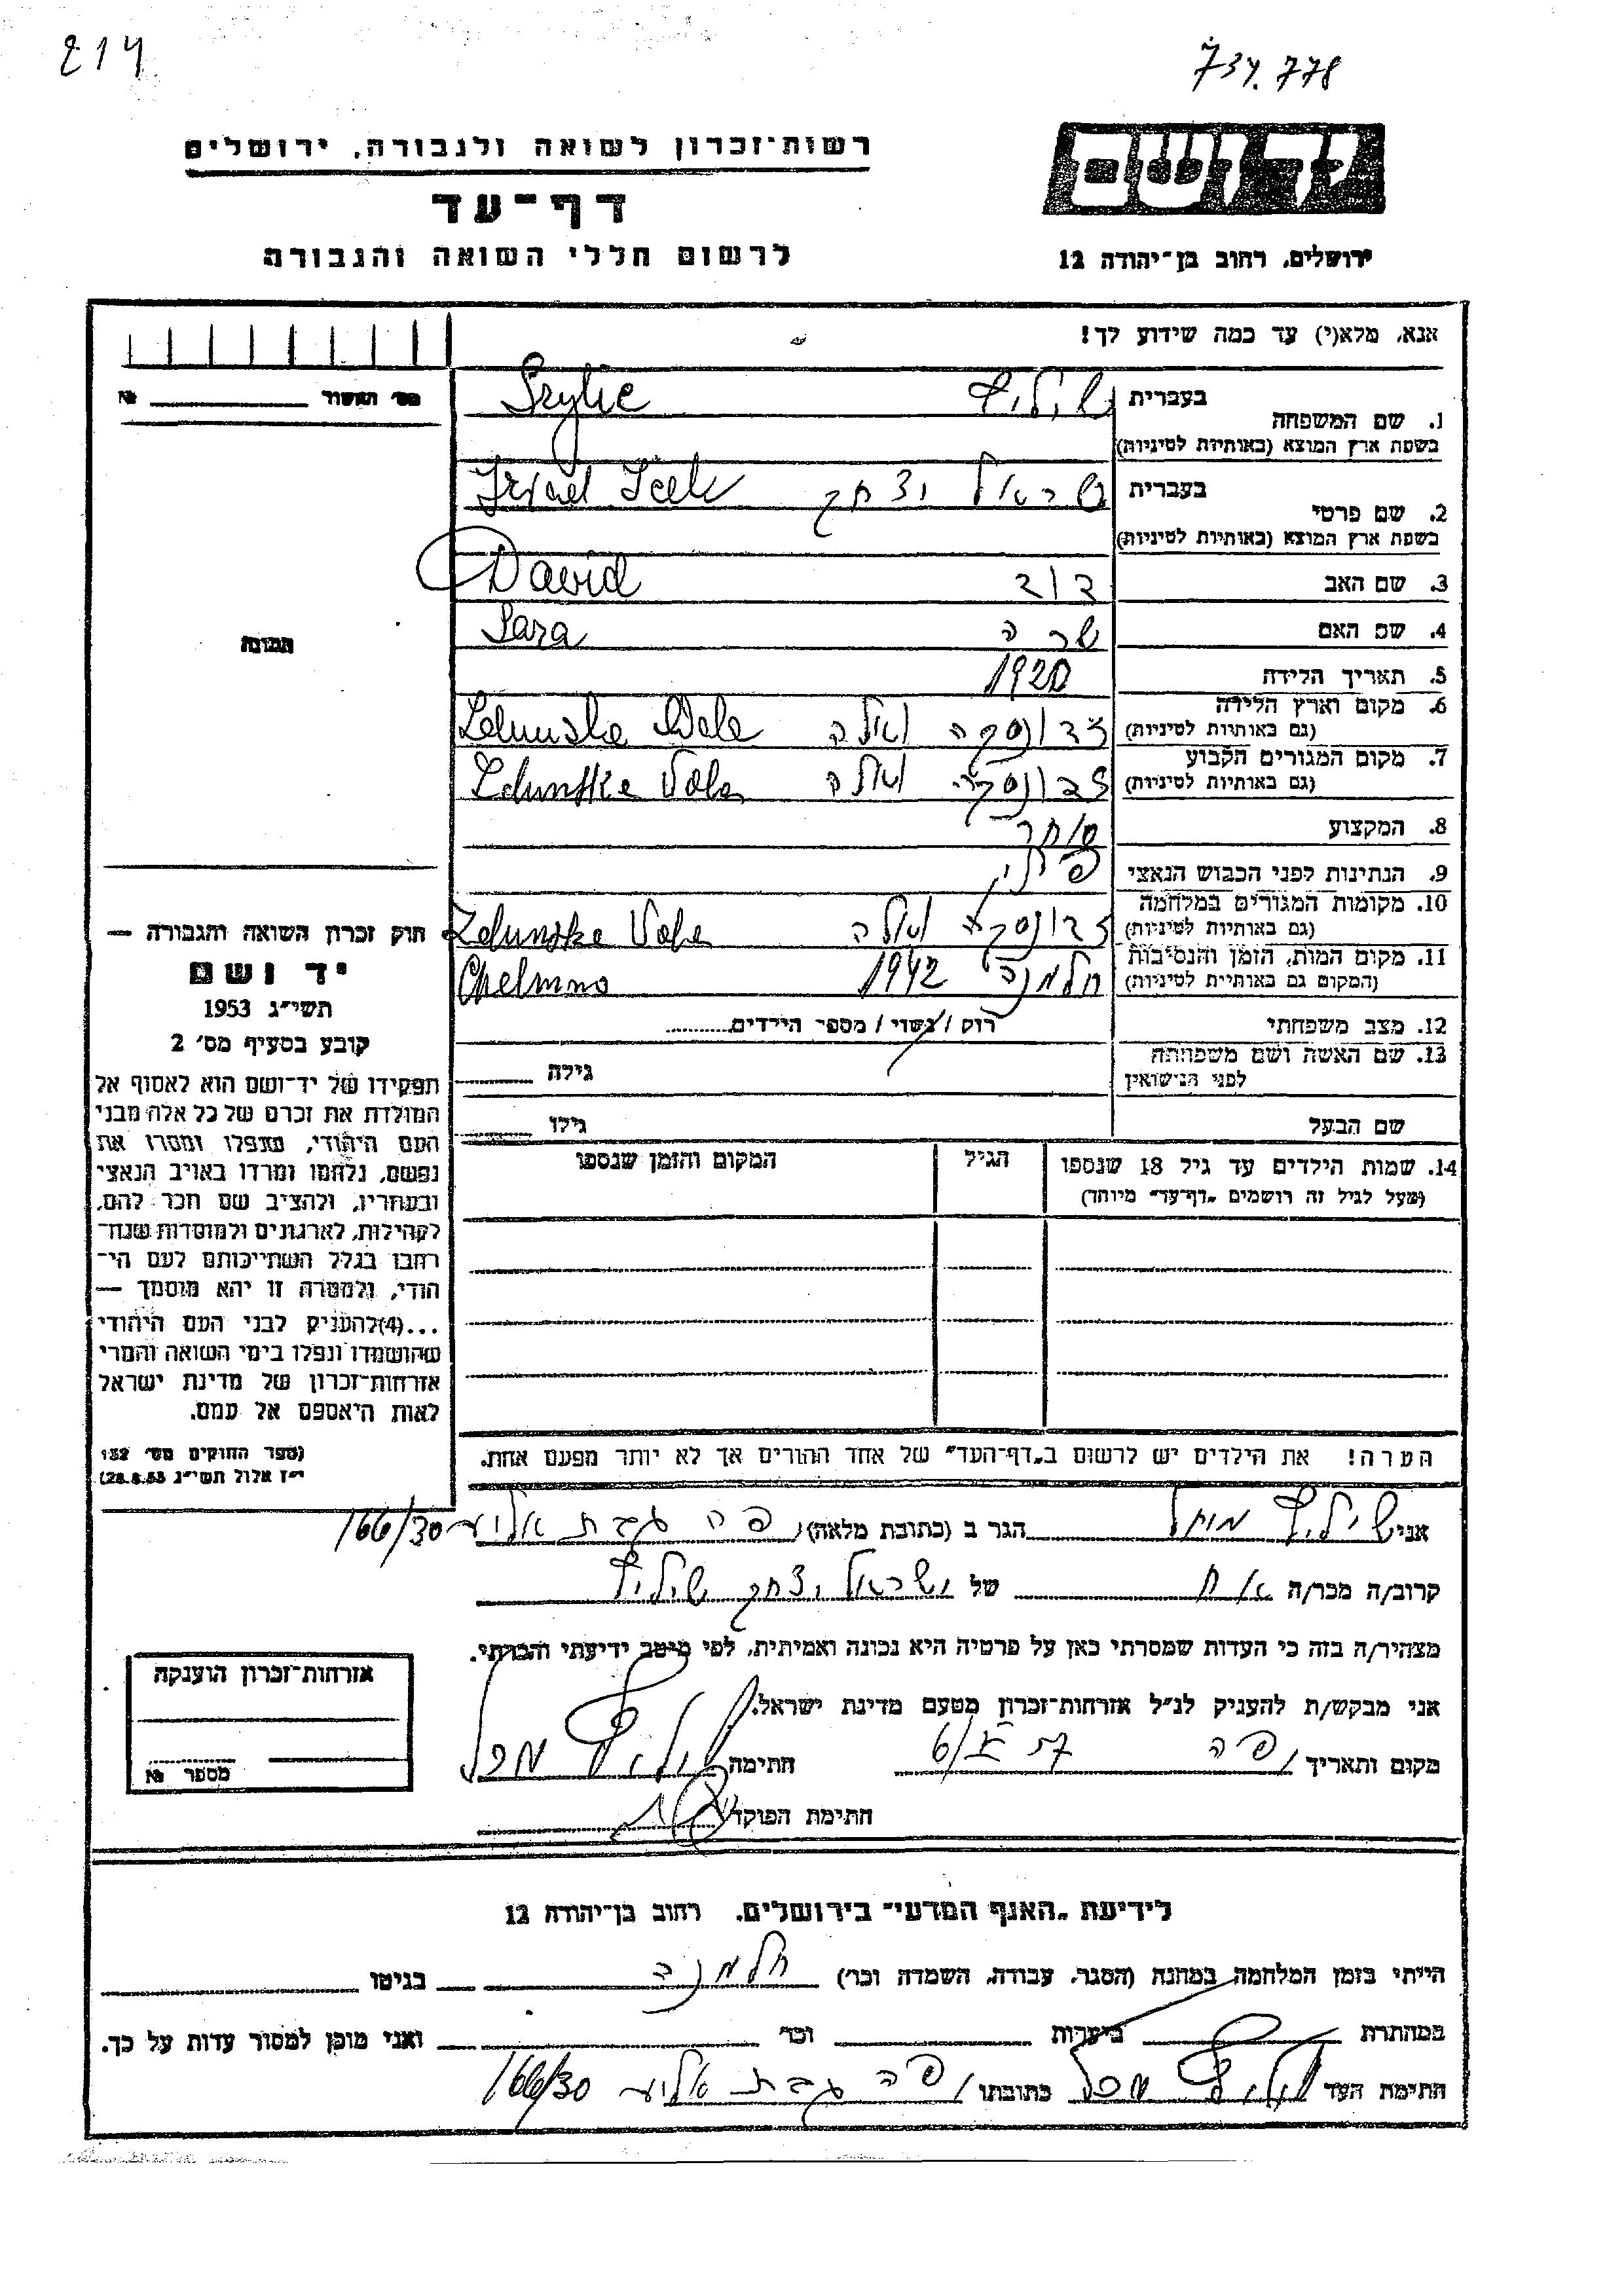 214
734.778
רשות־זכרון לשואה ולגבורה, ירושלים
דף־עד
לרשום חללי השואה והגבורה
יד ושם
ירושלים, רחוב בן־יהודה 12
אנא, מלא(י) עד כמה שידוע לך!
מס' האשור № 
1. שם המשפחה בעברית שיליץ
בשפת ארץ המוצא (באותיות לטיניות) Szylic
2. שם פרטי בעברית ישראל יצחק
בשפת ארץ המוצא (באותיות לטיניות) Izrael Icek
3. שם האב דוד David
4. שם האם שרה Sara
5. תאריך הלידה 1920
6. מקום וארץ הלידה זדונסקה וולה Zdunska Wola
(גם באותיות לטיניות)
7. מקום המגורים הקבוע זדונסקה וולה Zdunska Vola
(גם באותיות לטיניות)
8. המקצוע סוחר
9. הנתינות לפני הכבוש הנאצי פולני
10. מקומות המגורים במלחמה זדונסקה וולה Zdunska Vola
(גם באותיות לטיניות)
11. מקום המות, הזמן והנסיבות חלמנו 1942 Chelmno
(המקום גם באותיות לטיניות)
12. מצב משפחתי רוק / נשוי / מספר הילדים
13. שם האשה ושם משפחתה לפני הנישואין גילה
שם הבעל גילו
14. שמות הילדים עד גיל 18 שנספו הגיל המקום והזמן שנספו
(מעל לגיל זה רושמים „דף־עד" מיוחד)
התמונה
חוק זכרון השואה והגבורה —
יד ושם
תשי״ג 1953
קובע בסעיף מס' 2
תפקידו של יד־ושם הוא לאסוף אל
המולדת את זכרם של כל אלה מבני
העם היהודי, שנפלו ומסרו את
נפשם, נלחמו ומרדו באויב הנאצי
ובעוזריו, ולהציב שם וזכר להם,
לקהילות, לארגונים ולמוסדות שנח־
רבו בגלל השתייכותם לעם הי־
הודי, ולמטרה זו יהא מוסמך —
...(4) להעניק לבני העם היהודי
שהושמדו ונפלו בימי השואה והמרי
אזרחות־זכרון של מדינת ישראל
לאות היאספם אל עמם.
(ספר החוקים מס' 132
י״ז אלול תשי״ג 28.8.53)
הערה! את הילדים יש לרשום ב„דף־העד" של אחד ההורים אך לא יותר מפעם אחת.
אני שיליץ הגר ב (כתובת מלאה) 166/30
קרוב/ה מכר/ה אח של ישראל יצחק שיליץ
מצהיר/ה בזה כי העדות שמסרתי כאן על פרטיה היא נכונה ואמיתית, לפי מיטב ידיעתי והכרתי.
אני מבקש/ת להעניק לנ״ל אזרחות־זכרון מטעם מדינת ישראל.
מקום ותאריך חתימה
חתימת הפוקד
אזרחות־זכרון הוענקה
מספר №
לידיעת „האגף המדעי" בירושלים, רחוב בן־יהודה 12
הייתי בזמן המלחמה במחנה (הסגר, עבודה, השמדה וכו') חלמנו בגיטו
במחתרת ביערות וכו' ואני מוכן למסור עדות על כך.
חתימת העד כתובתו 166/30